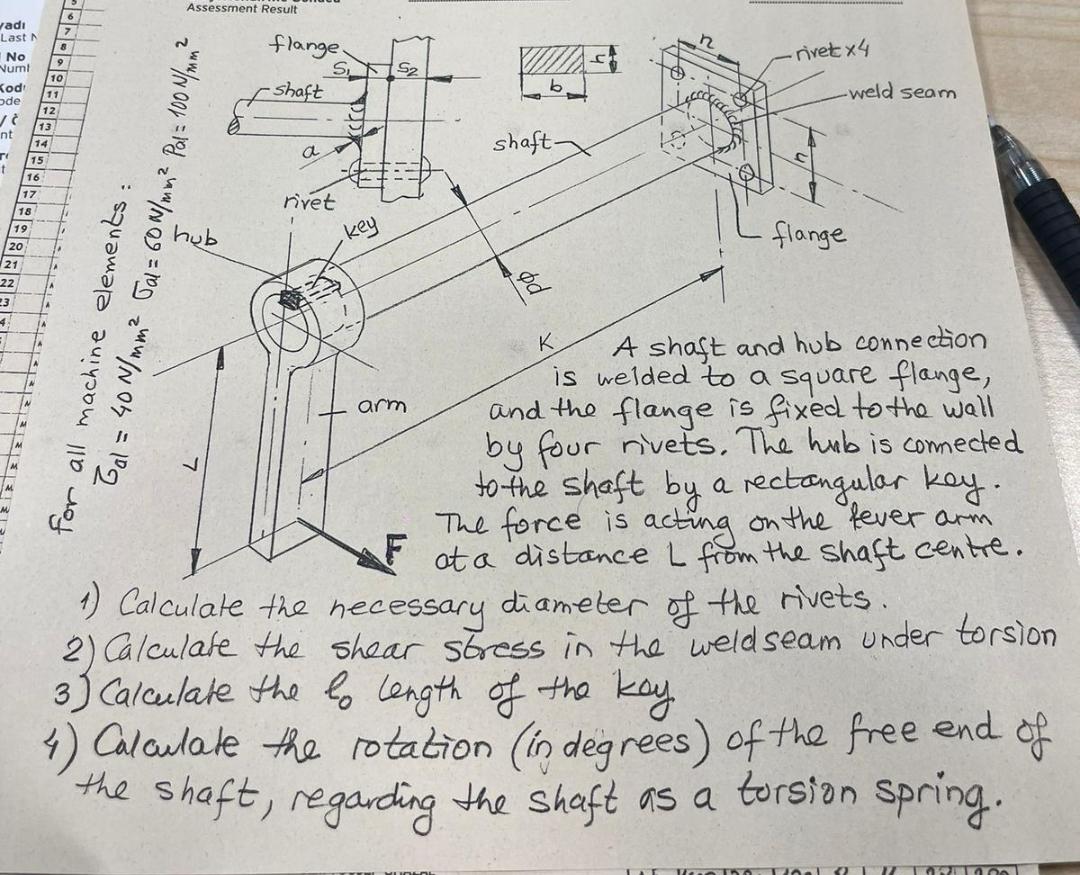 Assessment Result
5
6
7
8
9
10
11
12
13
14
15
16
17
18
19
20
21
22
Last N
No
flange
S1
S2
shaft
a
rivet
h
b
n
rivet x4
weld seam
shaft
n
flange
hub
key
ød
K
arm
L
F
For all machine elements:
τal = 40 N/mm² σal = 60 N/mm² Pal = 100 N/mm²
A shaft and hub connection
is welded to a square flange,
and the flange is fixed to the wall
by four rivets. The hub is connected
to the shaft by a rectangular key.
The force is acting on the lever arm
at a distance L from the shaft centre.
1) Calculate the necessary diameter of the rivets.
2) Calculate the shear stress in the weld seam under torsion
3) Calculate the lo length of the key
4) Calculate the rotation (in degrees) of the free end of
the shaft, regarding the shaft as a torsion spring.